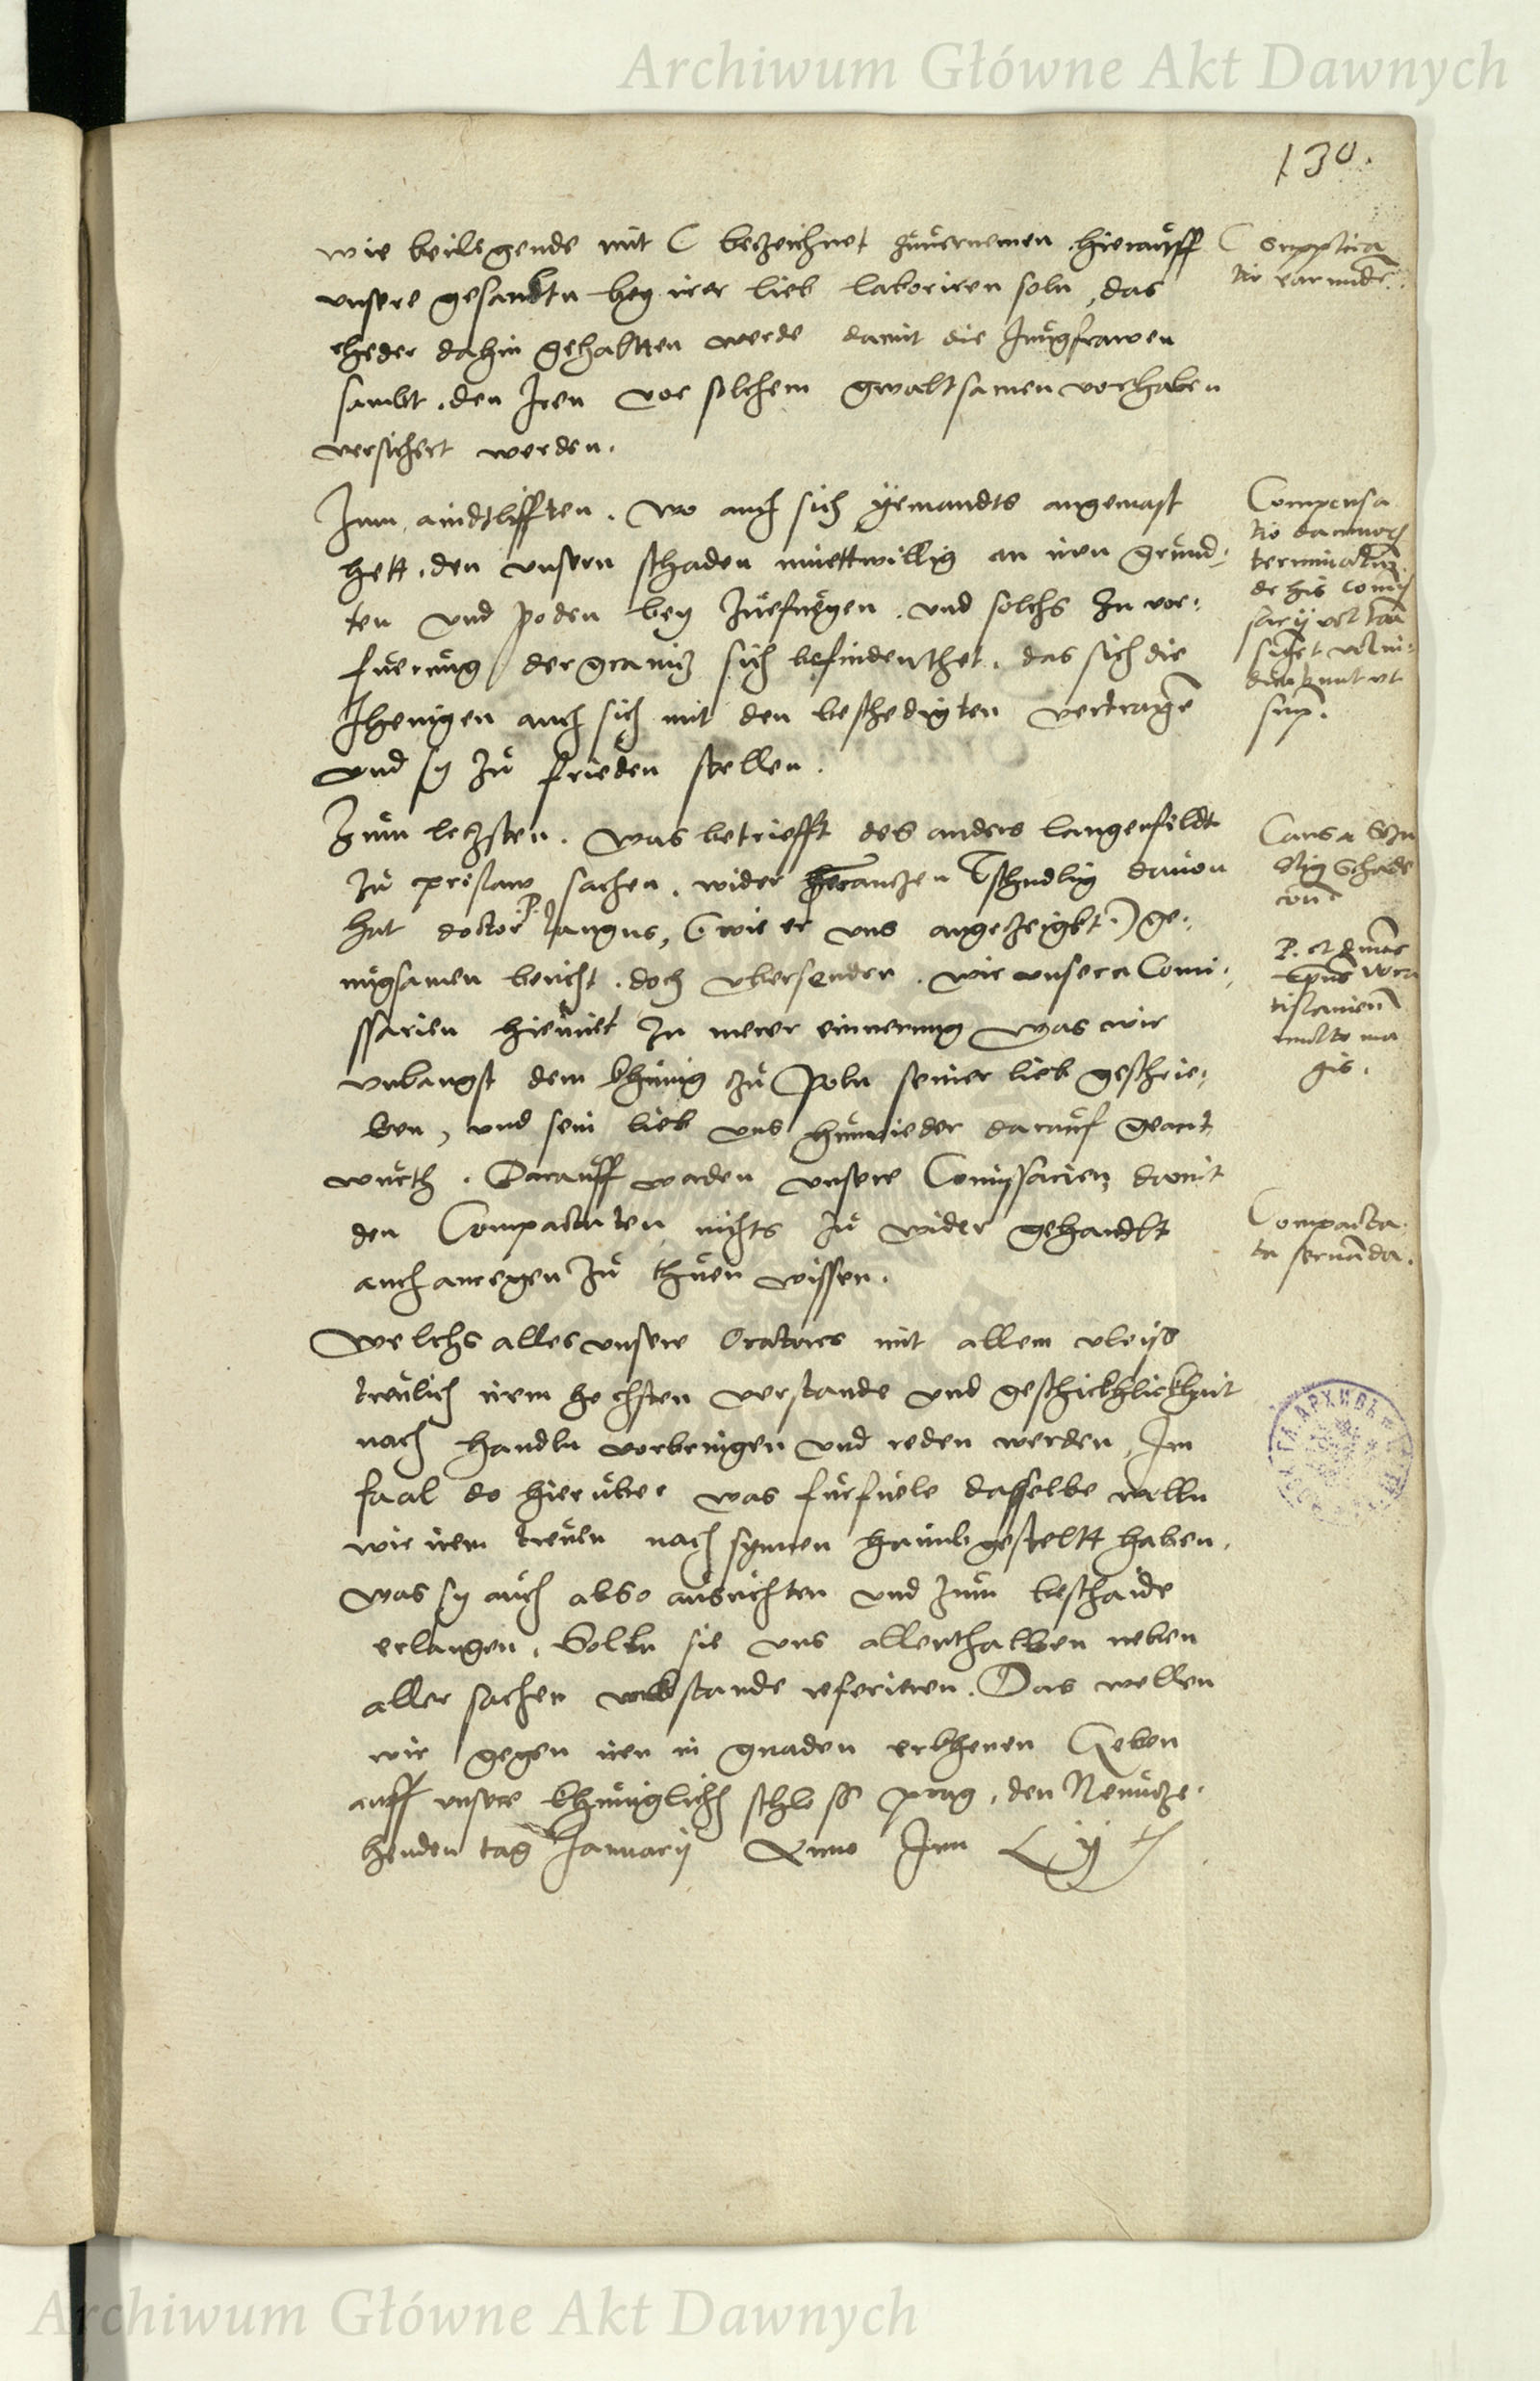 Archiwum Główne Akt Dawnych
130.
wie beiligende mit C bezeichnet zuvernemen. hierauff
unsere gesandtn bey irer lieb laboriren soln, das
yheder dahin gehaltten werde damit die Jungfrawen
sambt den Iren vor solchem gwaltsamen vorhaben
versichert werden.
C Supplica
tio earundē.
Zum aindtlifften. Wo auch sich yemandts angemast
hett, den unsern schaden muettwillig an iren grund-
ten und poden bey zuefuegen. und solchs in vor-
fuerung der granitz sich befinden thet. das sich die
Jhenigen auch sich mit den beschedigten vertragē
und sy zu frieden stellen.
Compensa
tio damnorū
de his comi
sarij
sup.
Zum letzsten. Was betriefft des anders langenfeldt
zu preslaw sachen. wider Tschudlig davon
hat doctor Langus, (wie er uns angezeigkt) ge-
nugsamen bericht. doch ubersenden. wir unsern Comi-
ssarien hiemit zu merer erinnerung was wir
unlangst dem khunig zu Poln seiner lieb geschrie-
ben, und sein lieb uns hinwieder darauf geant
wurth. Darauff werden unsere Comissarien damit
den Compactaten nichts zu wider gehandlt
auch anregen zu thuen wissen.
Causa
P. et
Epūs Wra
tislavien̄
multo ma
gis.
Compacta
ta servāda.
Welchs alles unsere Oratores mit allem vleiss
treulich irem hochsten verstande und geschickhlickhait
nach handln vorbringen und reden werden, Im
faal do hieruber was furfuele dasselbe welln
wir irem treuen nach synnen haimbgestellt haben.
Was sy auch also ausrichten und zum beschaide
erlangen. Solln sie uns allenthalben neben
aller sachen umbstande referieren. Das wellen
wir gegen iren in gnaden erkhenen Geben
auff unsere khuniglichē schloss prag, den Neuntze-
henden tag January Anno Im Lij
Archiwum Główne Akt Dawnych